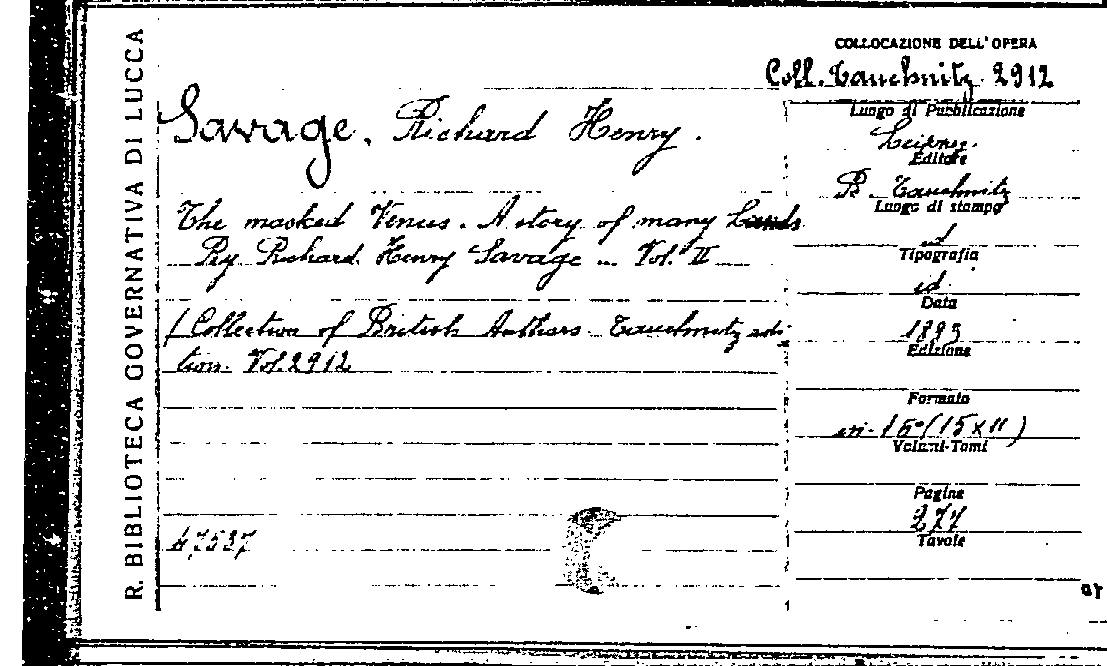 R. BIBLIOTECA GOVERNATIVA DI LUCCA
COLLOCAZIONE DELL'OPERA
Coll. Tauchnitz 2912
Savage, Richard Henry.
The masked Venus. A story of many Lands
By Richard Henry Savage _ Vol. II
(Collection of British Authors. Tauchnitz edi-
tion. Vol. 2912
47537
Luogo di Pubblicazione
Editore
B. Tauchnitz
Luogo di stampo
id
Tipografia
id.
Data
1893
Edizione
Formato
in-16°(15x11)
Volumi-Tomi
Pagine
277
Tavole